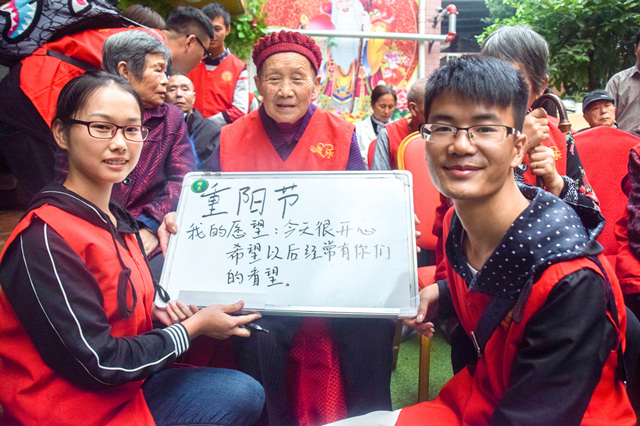 重阳节
我的愿望：今天很开心
希望以后经常有你们
的看望。